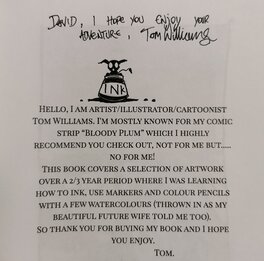 DAVID, I HOPE YOU ENJOY YOUR
ADVENTURE, Tom Williams
INK
HELLO, I AM ARTIST/ILLUSTRATOR/CARTOONIST
TOM WILLIAMS. I'M MOSTLY KNOWN FOR MY COMIC
STRIP “BLOODY PLUM” WHICH I HIGHLY
RECOMMEND YOU CHECK OUT, NOT FOR ME BUT.....
NO FOR ME!
THIS BOOK COVERS A SELECTION OF ARTWORK
OVER A 2/3 YEAR PERIOD WHERE I WAS LEARNING
HOW TO INK, USE MARKERS AND COLOUR PENCILS
WITH A FEW WATERCOLOURS (THROWN IN AS MY
BEAUTIFUL FUTURE WIFE TOLD ME TOO).
SO THANK YOU FOR BUYING MY BOOK AND I HOPE
YOU ENJOY.
TOM.